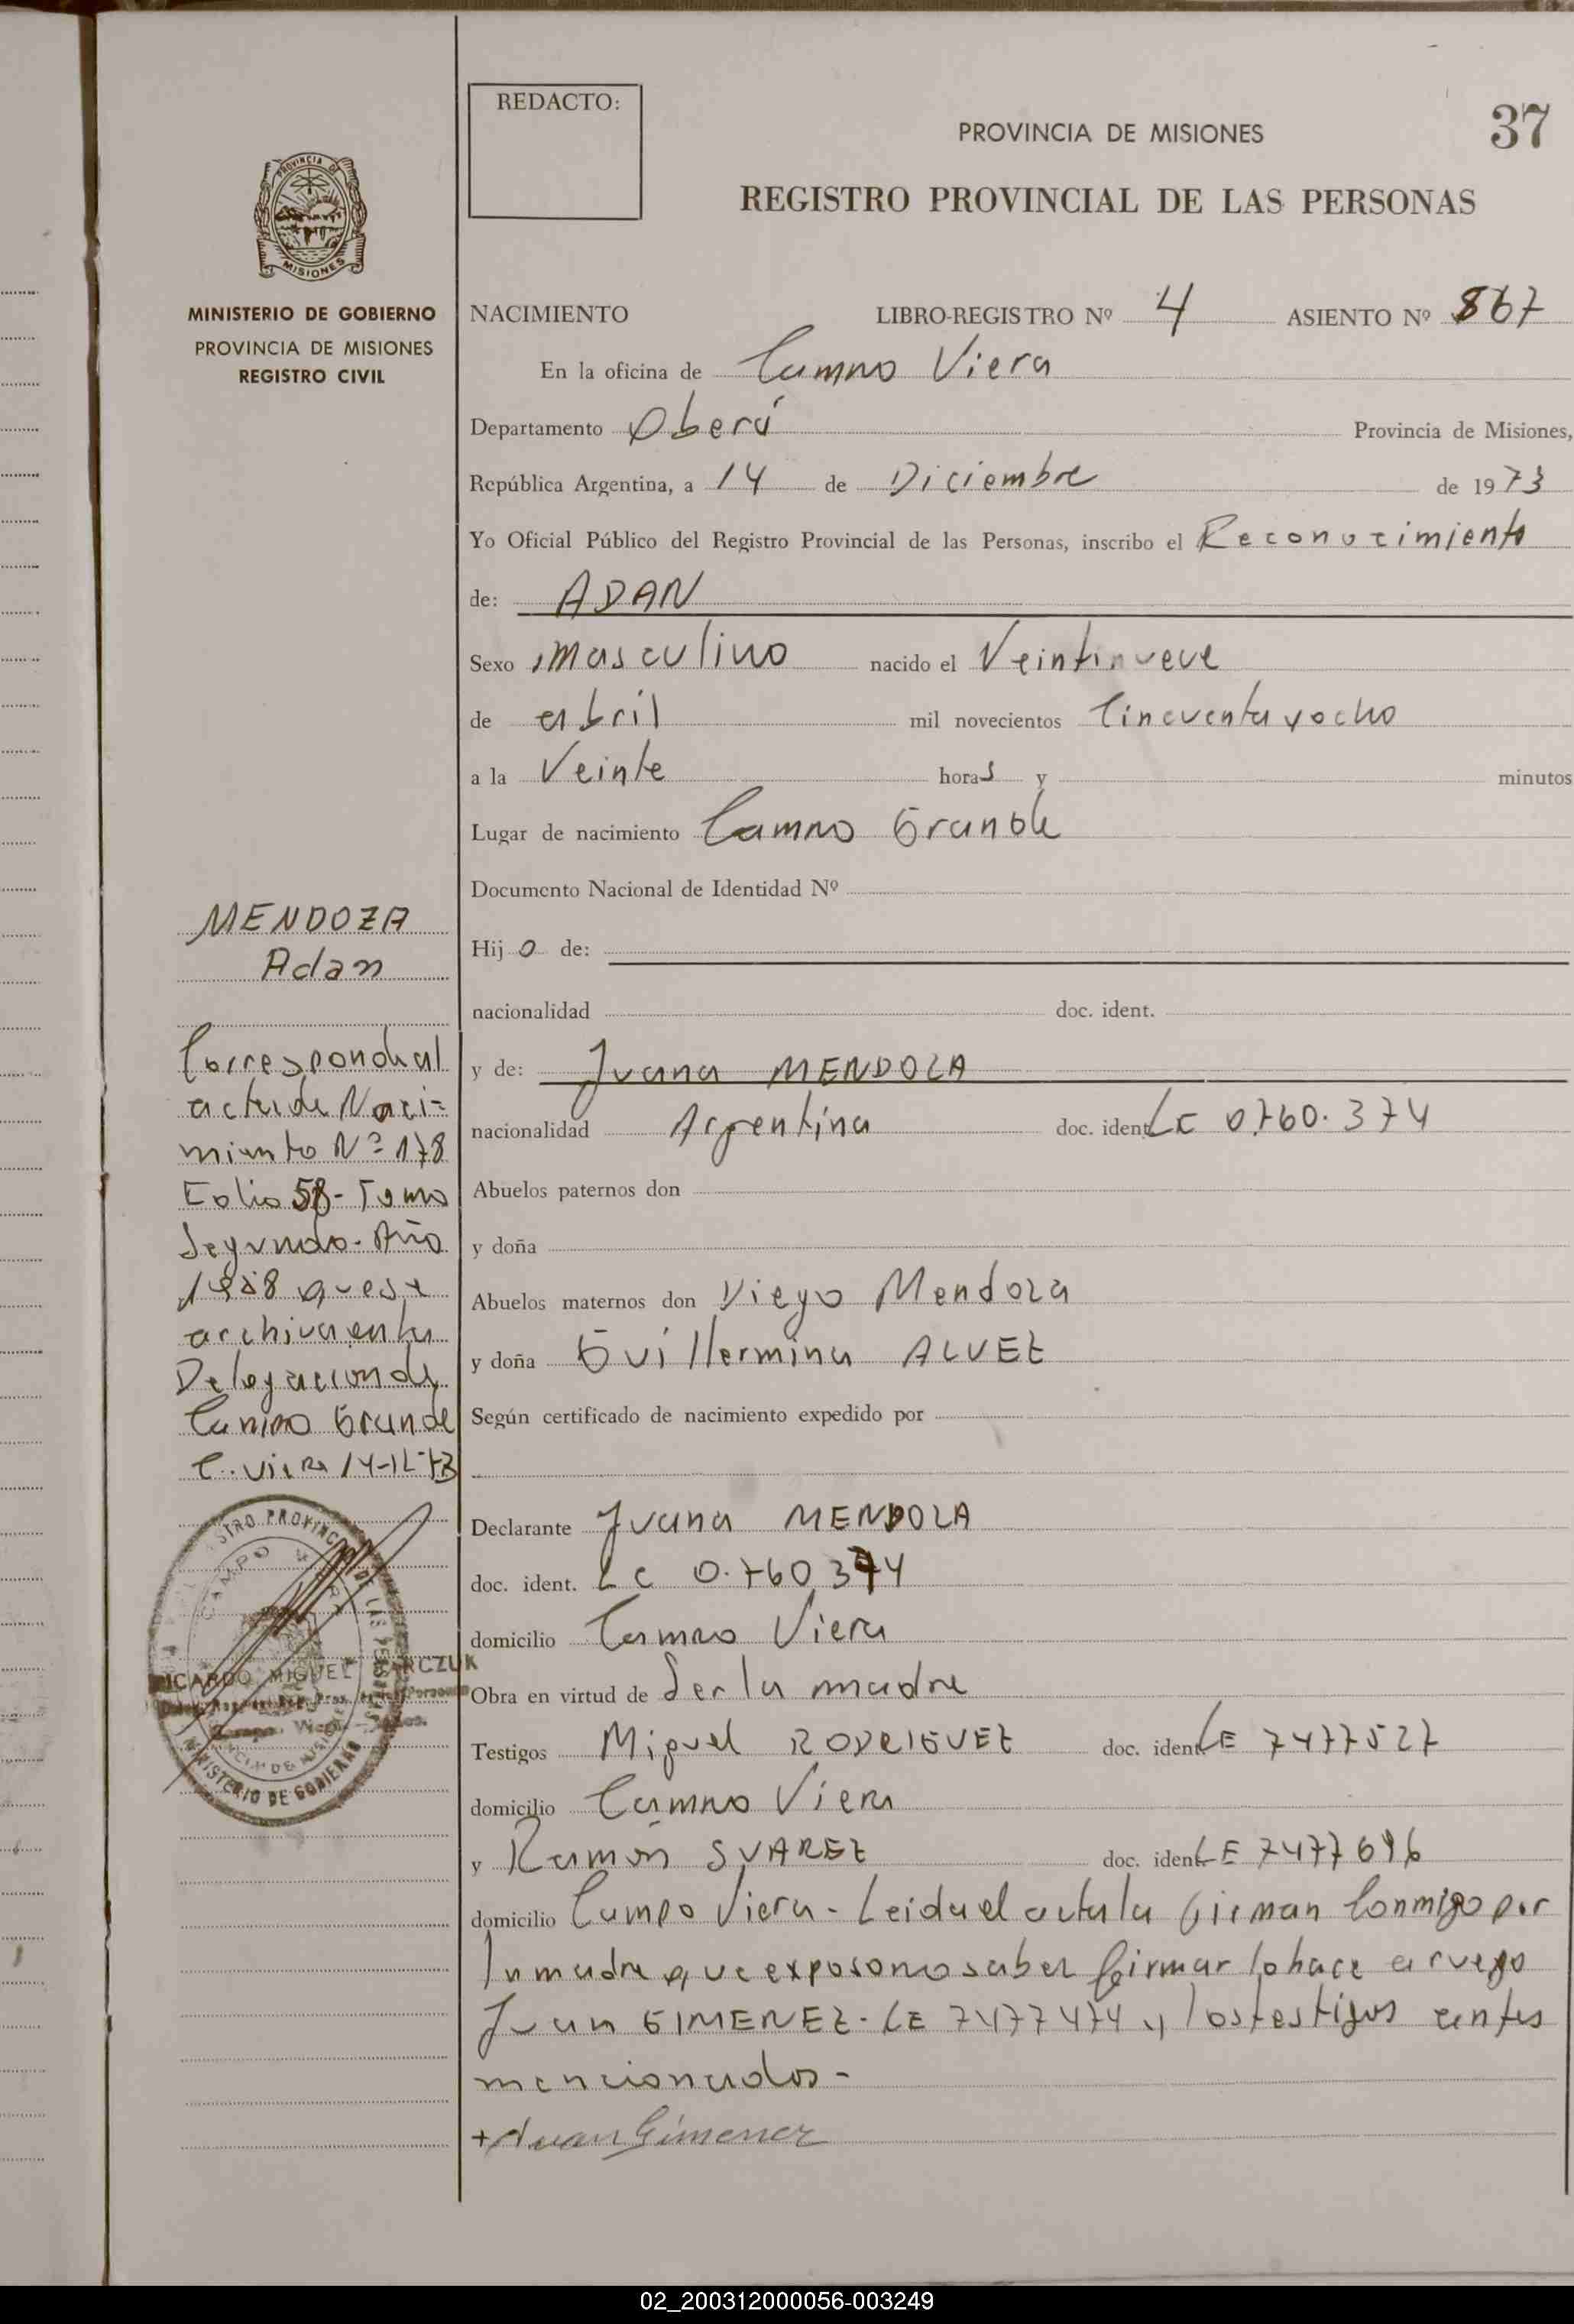 REDACTO:
PROVINCIA DE MISIONES
37
REGISTRO PROVINCIAL DE LAS PERSONAS
PROVINCIA DE
MISIONES
MINISTERIO DE GOBIERNO
PROVINCIA DE MISIONES
REGISTRO CIVIL
NACIMIENTO LIBRO-REGISTRO Nº 4 ASIENTO Nº 867
En la oficina de Campo Viera
Departamento Oberá Provincia de Misiones,
República Argentina, a 14 de Diciembre de 1973
Yo Oficial Público del Registro Provincial de las Personas, inscribo el Reconocimiento
de: ADAN
Sexo masculino nacido el Veintinueve
de abril mil novecientos Cincuenta y ocho
a la Veinte horas y minutos
Lugar de nacimiento Campo Grande
Documento Nacional de Identidad Nº
Hijo de:
nacionalidad doc. ident.
y de: Juana MENDOZA
nacionalidad Argentina doc. ident. LC 0.760.374
Abuelos paternos don
y doña
Abuelos maternos don Diego Mendoza
y doña Guillermina ALVEZ
Según certificado de nacimiento expedido por
Declarante Juana MENDOZA
doc. ident. LC 0.760374
domicilio Campo Viera
Obra en virtud de Ser la madre
Testigos Miguel RODRIGUEZ doc. ident. LE 7477527
domicilio Campo Viera
y Ramón SUAREZ doc. ident. LE 7477696
domicilio Campo Viera - Leida el acta la firman Conmigo por
la madre que expuso no saber firmar lo hace a ruego
Juan GIMENEZ - LE 7477474 y los testigos antes
mencionados -
+ Juan Gimenez
MENDOZA
Adan
Corresponde al
acta de Naci=
miento Nº 178
Folio 58 - Tomo
Segundo - Año
1958 que se
archiva en la
Delegacion de
Campo Grande
C. Viera 14-12-73
REGISTRO PROVINCIAL DE LAS PERSONAS
CAMPO VIERA
RICARDO MIGUEL
Campo Viera - Mnes.
PROVINCIA DE MISIONES
MINISTERIO DE GOBIERNO
02_200312000056-003249